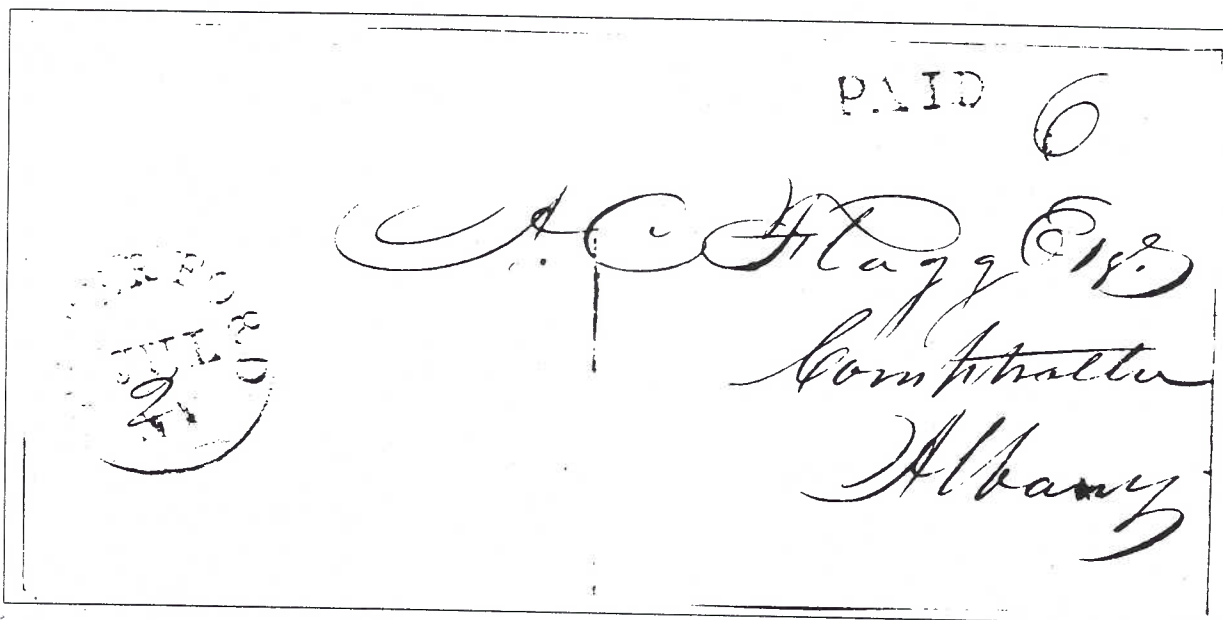 PAID 6
A. C Flagg Esqr.
Comptroller
Albany
JUL
2
NY